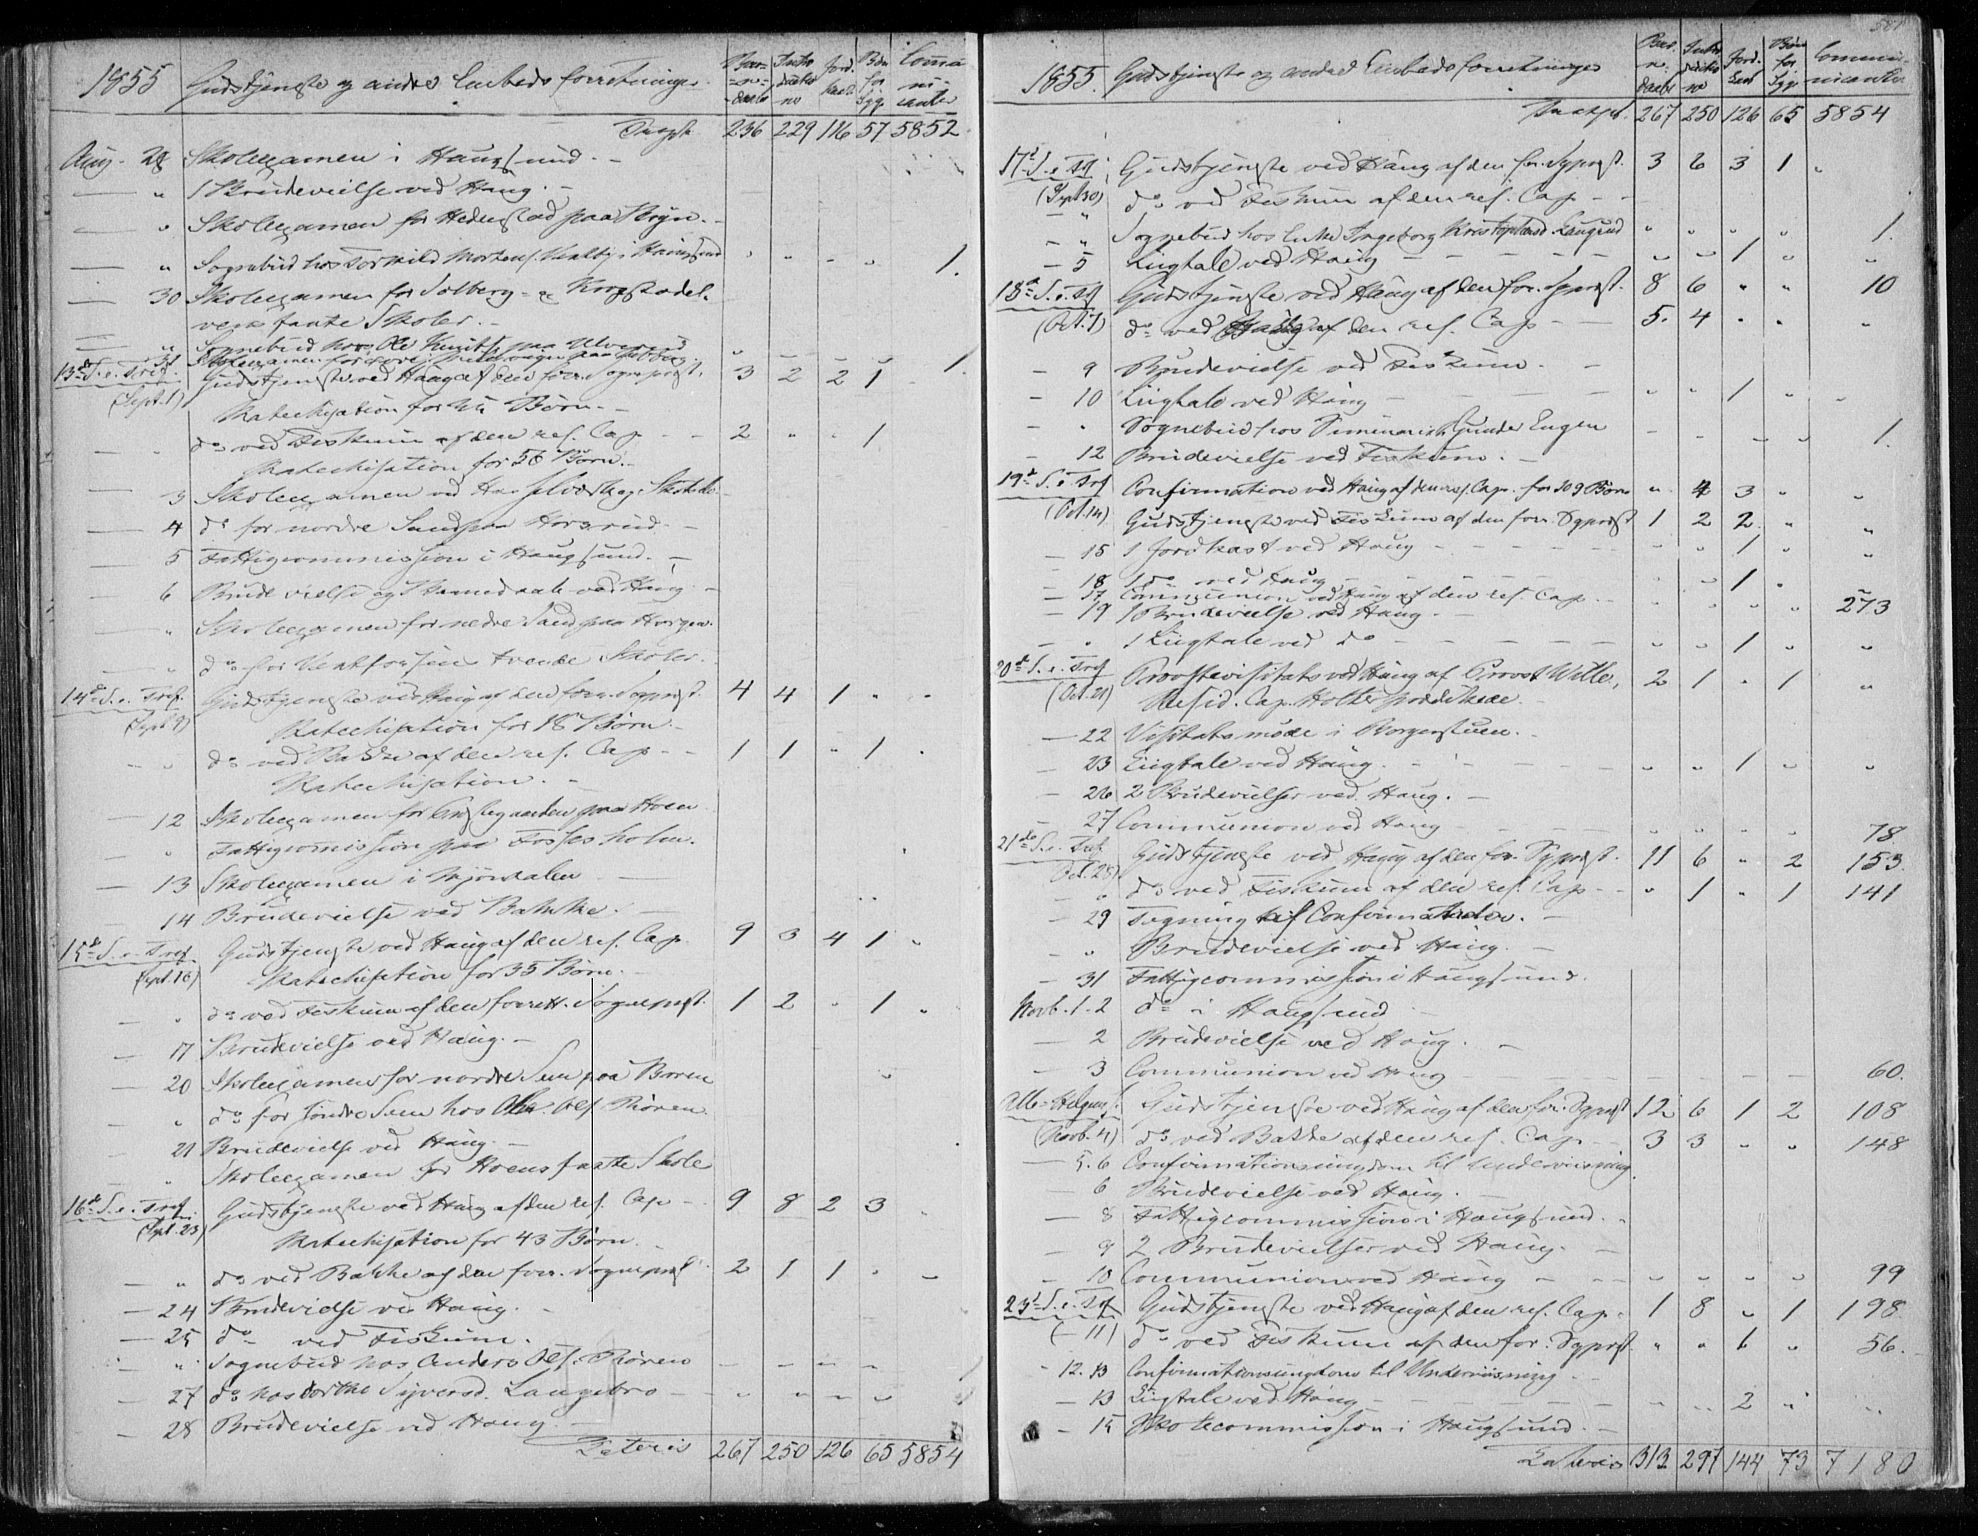 1855 Gudstjenste og andre Embedsforretninger. Barnedaab Introductio Jordkast Bøn for Syge Communicanter
Transp. 236 229 116 57 5852
Aug. 28 Skoleexamen i Haugsund. –
— " 1 Brudevielse ved Haug. –
— " Skoleexamen for Hedenstad paa Bryn. –
— " Sognebud hos Torkild Mortens. i Haugsund " " " " 1.
— 30 Skoleexamen for Solberg- og Krogstadel-
vens faste Skoler. –
— " Sognebud hos Ole Knuts. paa Ulverud " – – – 1.
— 31 Skoleexamen for
13de S. e. Tref. Gudstjenste ved Haug af den forr. Sognepræst. 3 2 2 1 "
(Sept. 1) Katechisation for Børn. –
— " do ved Fiskum af den res. Cap. – – 2 " " 1
Katechisation for 56 Børn. –
— 3 Skoleexamen ved
— 4 do for nordre Sand paa Horsrud. –
— 5 Fattigcommission i Haugsund. –
— 6 Brudevielse og ved Haug. –
— " Skoleexamen for nedre Sand paa Horgen.
— " do for Vestfossen tvende Skoler.
14de S. e. Tref. Gudstjenste ved Haug af den forr. Sognpræst. 4 4 1 " "
(Sept. 9) Katechisation for 18 Børn. –
— " do ved Bakke af den res. Cap. – – 1 1 " 1 "
Katechisation. –
— 12 Skoleexamen for Præstegaarden paa Hoen
— " Fattigcomission paa Fossesholm.
— 13 Skoleexamen i Mjøndalen –
— 14 Brudevielse ved Bakke. –
15de S. e. Tref. Gudstjenste ved Haug af den res. Cap. 9 3 4 1 "
(Sept. 16) Katechisation for 35 Børn. –
— " do ved Fiskum af den forrett. Sognepræst. 1 2 " 1 "
— 17 Brudevielse ved Haug. –
— 20 Skoleexamen for nordre Sem paa Boren
— " do for søndre Sem hos Ols. Røren
— 21 Brudevielse ved Haug. –
— " Skoleexamen for Hoens faste Skole
16de S. e. Tref. Gudstjenste ved Haug af den res. Cap. – 9 8 2 3 "
(Sept. 23) Katechisation for 43 Børn. –
— " do ved Bakke af den forr. Sognepræst 2 1 1 " "
— 24 1 Brudevielse ved Haug. –
— 25 do ved Fiskum. –
— " Sognebud hos Anders Ols. Røren – – – –
— 27 do hos Dorthe Syversd. Langebro – " " " "
— 28 Brudevielse ved Haug. –
Lateris 267 250 126 65 5854
581
1855. Gudstjenste og andre Embedsforretninger Barnedaab Introductio Jordkast Bøn for Syge Communicanter
Transp. 267 250 126 65 5854
17de S. e. Tref. Gudstjenste ved Haug af den for. Sgpræst. 3 6 3 1 "
(Sept. 30) do ved Fiskum af den res. Cap. – –
— " Sognebud hos Enke Ingeborg Kristophersd. " " " " 1.
— 5 Liigtale ved Haug – – – – " " 1 " "
18de S. e. Tref. Gudstjenste ved Haug af den for. Sgpræst. 8 6 " " 10
(Oct. 7) do ved af den res. Cap. – 5. 4 " " "
— 9 Brudevielse ved Fiskum. –
— 10 Liigtale ved Haug – – – " " 1 " "
— " Sognebud hos Seminarist Gunder Eugen – – – – 1.
— 12 Brudevielse ved Fiskum. –
19de S. e. Tref. Confirmation ved Haug af den res. Cap. for 109 Børn " 4 3 " "
(Oct. 14) Gudstjenste ved Fiskum af den forr. Sgpræst 1 2 2 " "
— 15 1 Jordkast ved Haug – – – " " 1 " "
— 18 1 do ved Haug – – – " " 1 "
— 17 Communion ved Haug af den res. Cap. – " " " " 273
— 19 1 Brudevielse ved Haug. –
— " 1 Liigtale ved do – – – " " 1 " "
20de S. e. Tref. Provstevisitats ved Haug af Provst Wille, 2 1 " 1 "
(Oct. 21) Resid. Cap. Holter prædikede.
— 22 Visitatsmøde i Borgerstuen. –
— 23 Liigtale ved Haug. – – – " " 1 " "
— 26 2 Brudevielser ved Haug. –
— 27 Communion ved Haug – – – " " " " 78
21de S. e. Tref. Gudstjenste ved Haug af den for. Sgpræst. 11 6 " 2 153
(Oct. 28) do ved Fiskum af den res. Cap. – – " 1 " 1 141
— 29 Tegning af Confirmander. –
— " Brudevielse ved Haug. –
— 31 Fattigcommission i Haugsund.
Novb. 1. 2 do i Haugsund
— 2 Brudevielse ved Haug. –
— 3 Communion ved Haug – – – – – – 60.
Alle-Helgens f. Gudstjenste ved Haug af den for. Sgpræst 12 6 1 2 108
(Novb. 4) do ved Bakke af den res. Cap. – 3 3 " " 148
— 5. 6 Confirmationsungdom til Underviisning.
— 6 Brudevielse ved Haug. –
— 8 Fattigcommission i Haugsund. –
— 9 2 Brudevielser ved Haug. –
— 10 Communion ved Haug – – – " " " " 99
23de S. e. Tref Gudstjenste ved Haug af den res. Cap. 1 8 " 1 198
(– 11) do ved Fiskum af den for. Sgpræst. " " 6 " 56.
— 12. 13 Confirmationsungdom til Underviisning. –
— 13 Liigtale ved Haug – – – – " 2 " "
— 15 Skolecommission i Haugsund. –
Lateris 313 297 144 73 7180